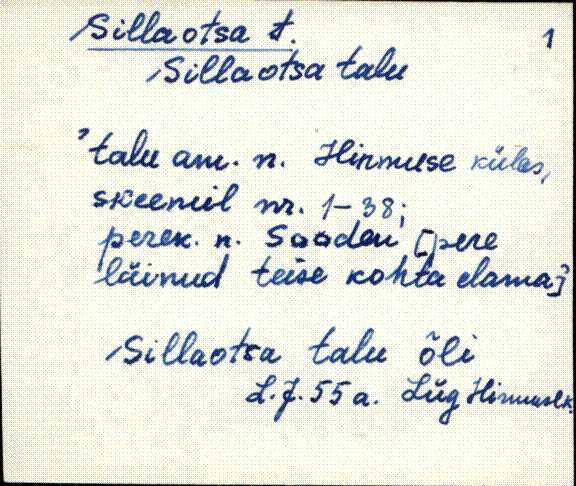 Sillaotsa t. 1
Sillaotsa talu
'talu am. n. Hirmuse külas,
skeemil nr. 1-38;
perek. n. Soodou [pere
läinud teise kohta elama]
Sillaotsa talu õli
L.J. 55 a. Lüg Hirmuse k.